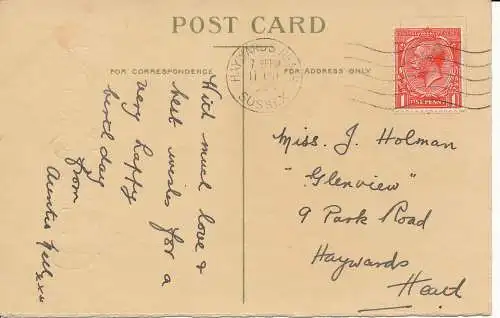 POST CARD
FOR CORRESPONDENCE
FOR ADDRESS ONLY
HAYWARDS
SUSSEX
1 ONE PENNY 1
With much love &
best wishes for a
very happy
birthday
from
Auntie Nell xxx
Miss. J. Holman
"Glenview"
9 Park Road
Haywards
Heath